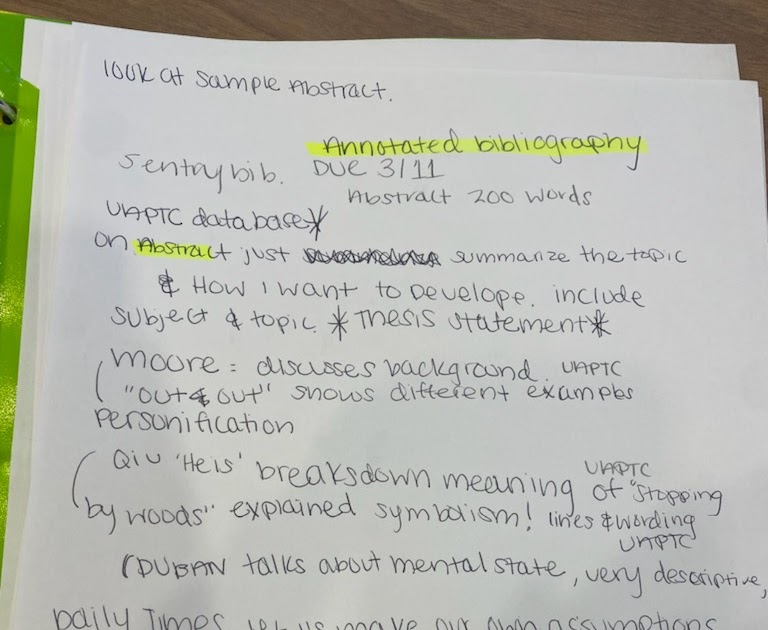 look at sample Abstract.
Annotated bibliography
5 entry bib. DUE 3/11
Abstract 200 words
UAPTC database*
on Abstract just summarize the topic
& How I want to Develope. include
subject & topic * Thesis statement*
Moore: discusses background. UAPTC
"out & out" shows different examples
Personification
Qiu 'Heis' breaksdown meaning of "Stopping UAPTC
by woods" explained symbolism! lines & wording
(DUBAN talks about mental state, very descriptive, UAPTC
Daily Times let us make our own assumptions